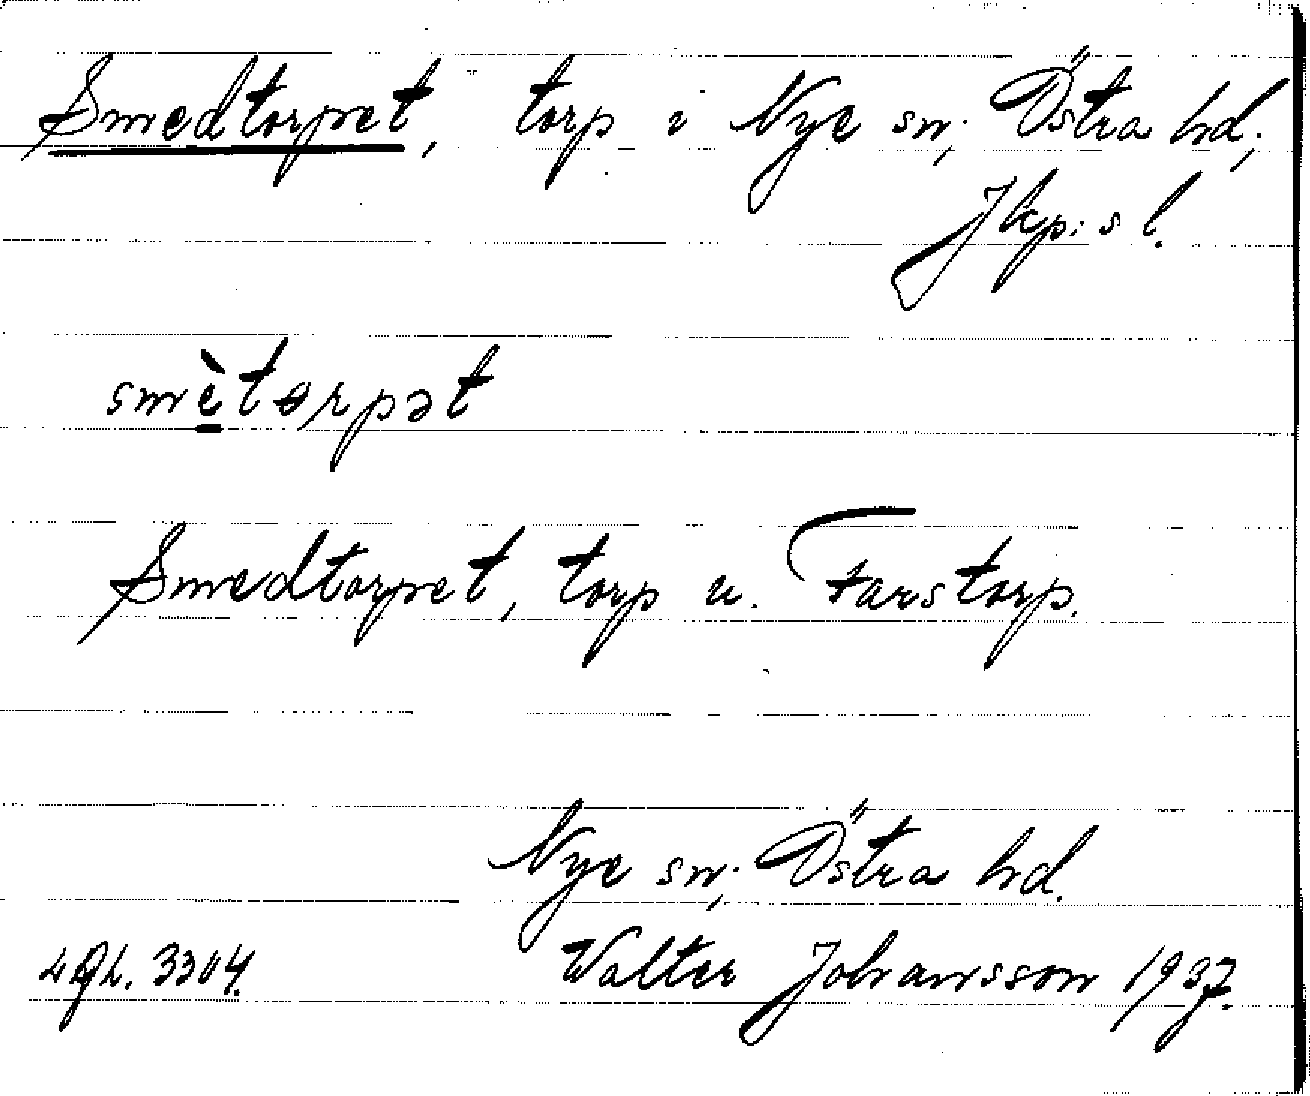 Smedtorpet, torp i Nye sn; Östra hd;
Jkp:s l.
smètɵrpət
Smedtorpet, torp u. Farstorp.
Nye sn; Östra hd.
Walter Johansson 1937.